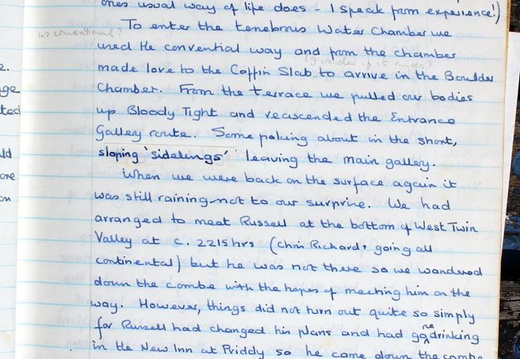 ones usual way of life does - I speak from experience!)
To enter the tenebrous Water Chamber we
used the convential way and from the chamber
made love to the Coffin Slab to arrive in the Boulder
Chamber. From the terrace we pulled our bodies
up Bloody Tight and reascended the Entrance
Galley route. Some poking about in the short,
sloping 'sidelings' leaving the main galley.
When we were back on the surface again it
was still raining - not to our surprise. We had
arranged to meet Russell at the bottom of West Twin
Valley at c. 2215hrs (Chris Richard, going all
continental) but he was not there so we wandered
down the combe with the hopes of meeting him on the
way. However, things did not turn out quite so simply
for Russell had changed his plans and had gone drinking
in the New Inn at Priddy so he came down the combe